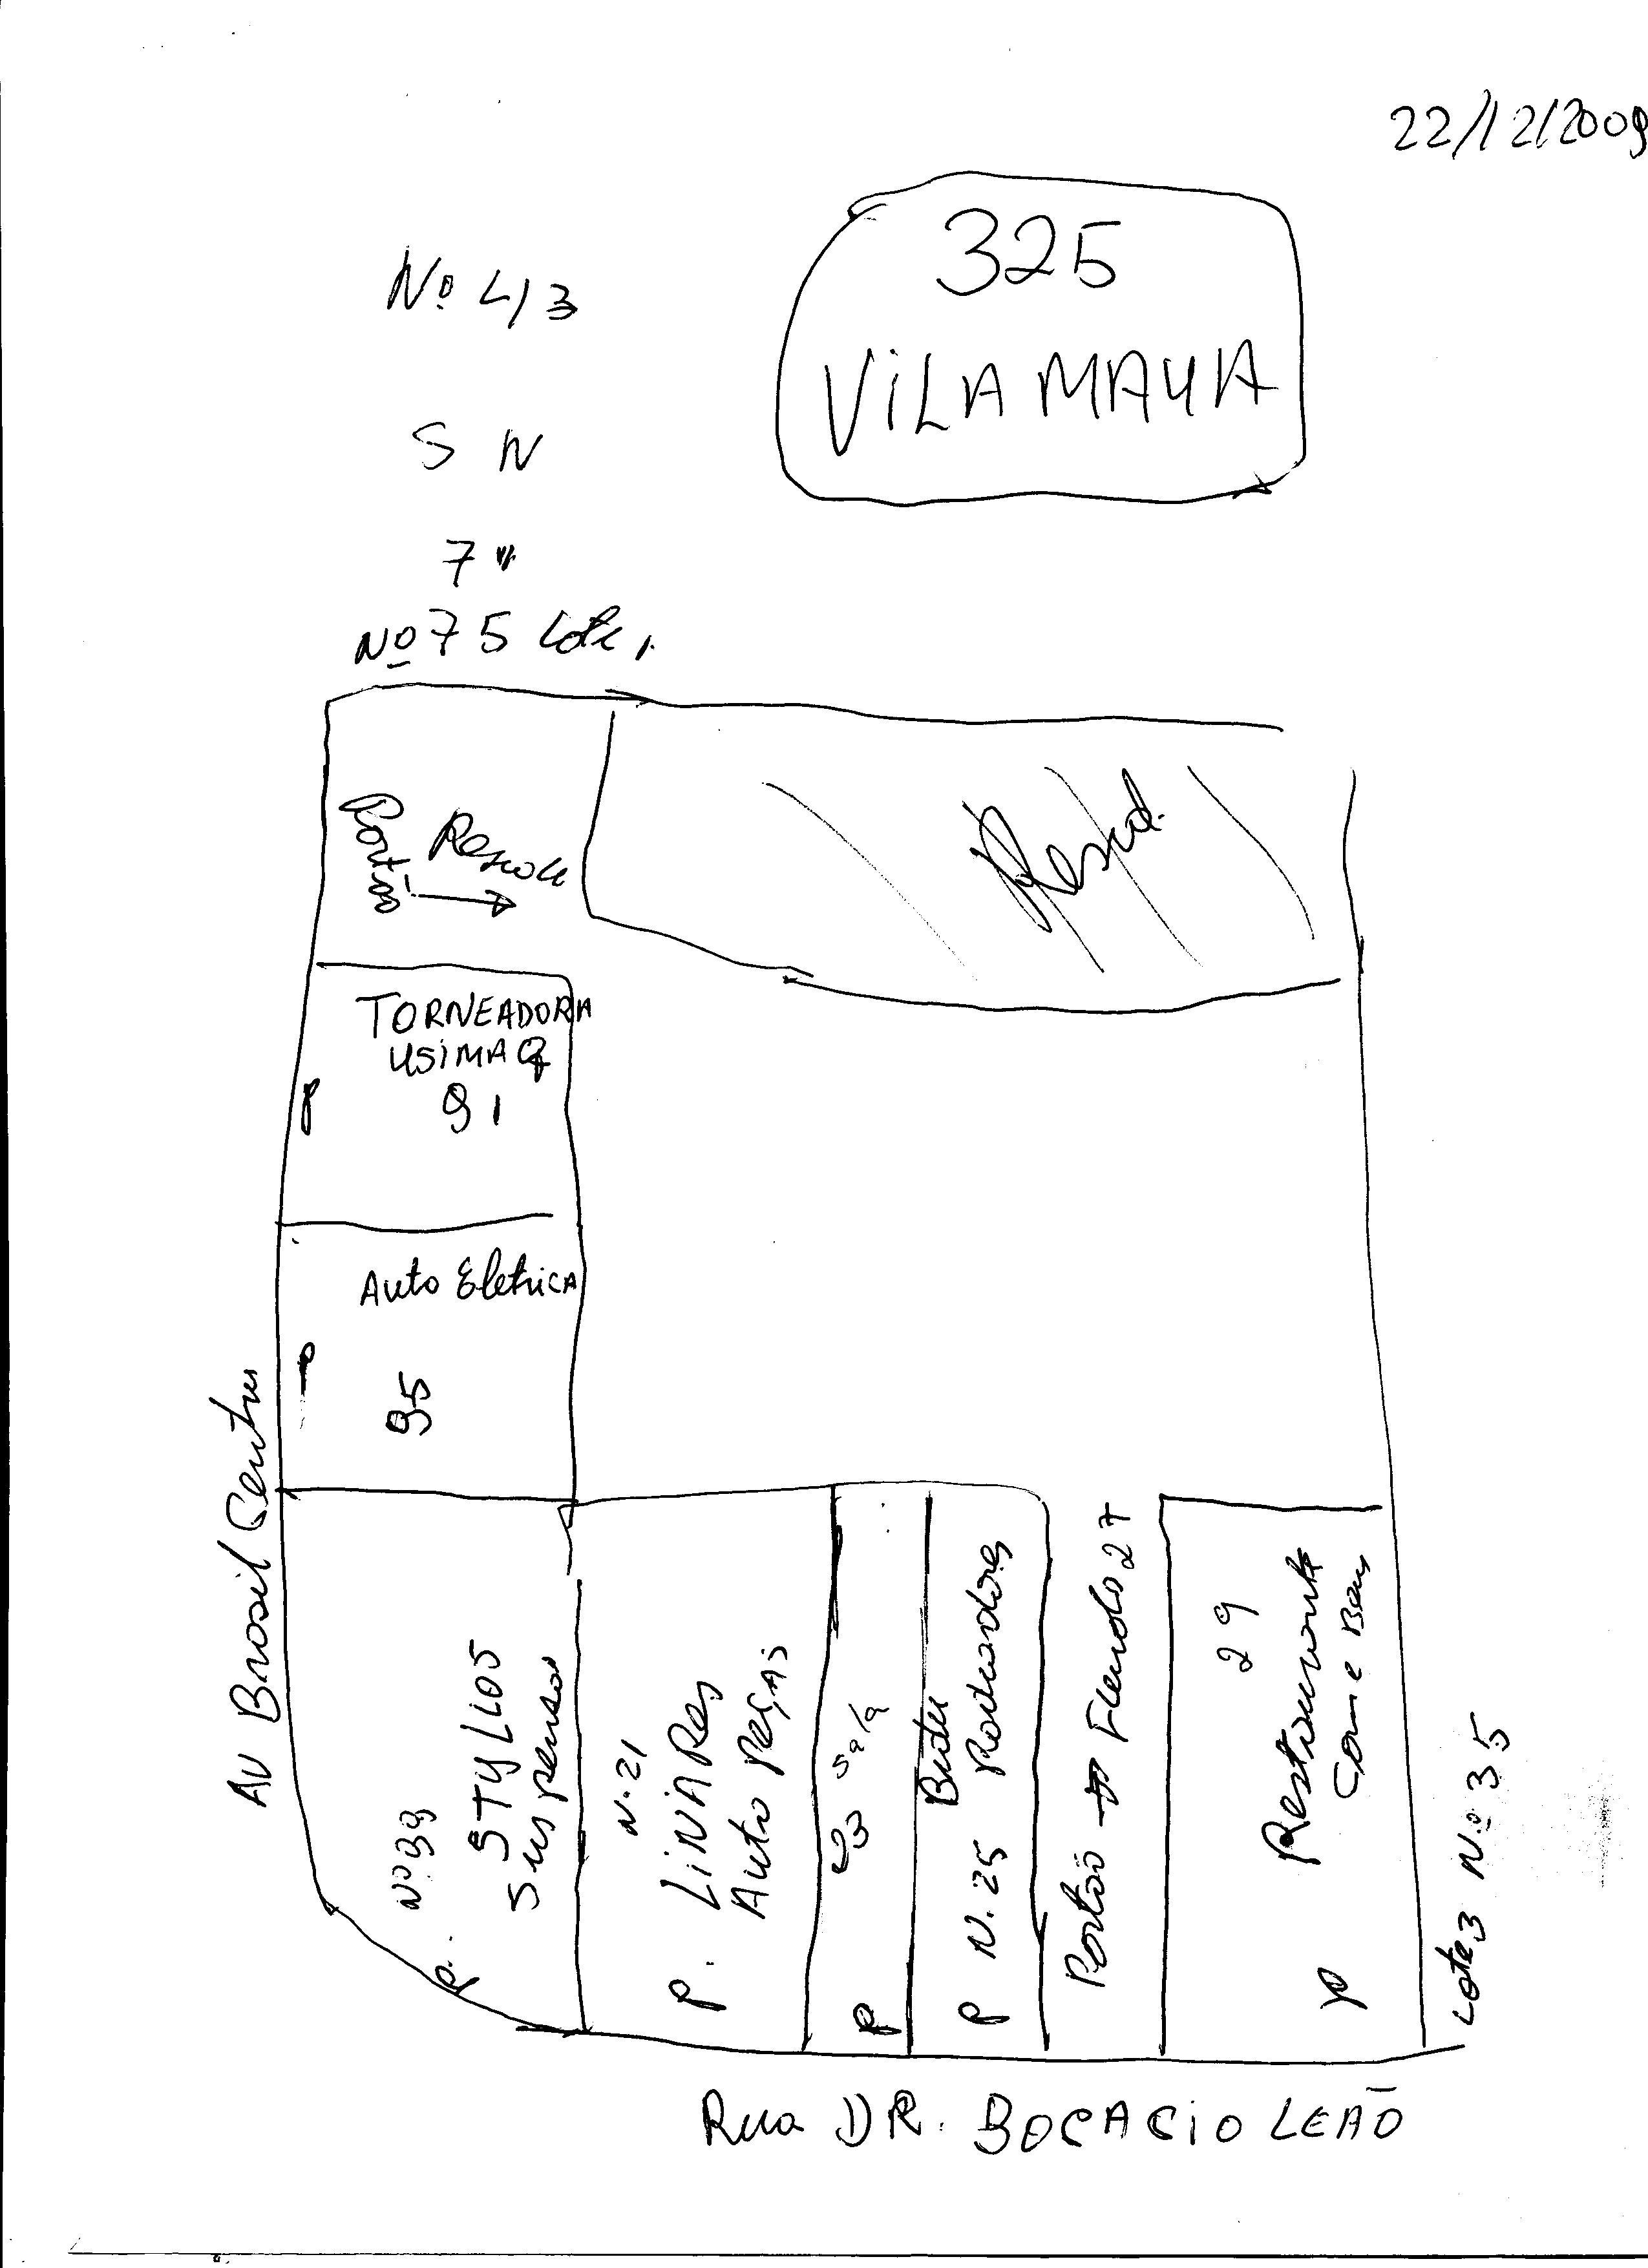 22/12/2009
325
VILA MAYA
Nº 413
S N
7"
Nº 75 Lote 1
Portão
Resid.
TORNEADORA
USIMAQ
P
91
Auto Eletrica
95
Av Brasil Centru
Nº 99
STYLLOS
Suspensa
P.
N. 21
LINARES
Auto Peças
P.
23 Sala
P
Radiadores
P N. 25
Portão → Fundo 27
29
Restaurante
Come Bem
P
Lote 3 Nº 35
Rua DR. BOCACIO LEÃO